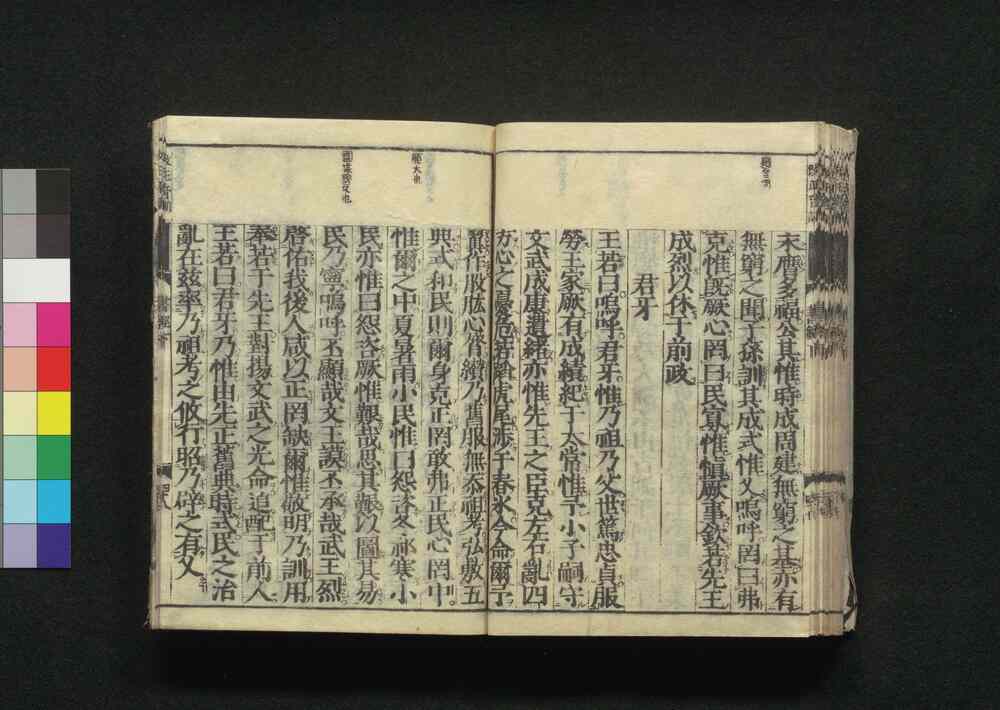 末膺多福公其惟時成周建無窮之基亦有
無窮之聞子孫訓其成式惟乂嗚呼罔曰弗
克惟既厥心罔曰民寡惟愼厥事欽若先王
成烈以休于前政
君牙
王若曰嗚呼君牙惟乃祖乃父世篤忠貞服
勞王家厥有成績紀于太常惟予小子嗣守
文武成康遺緒亦惟先王之臣克左右亂四
方心之憂危若蹈虎尾涉于春氷今命爾予
翼作股肱心膂纘乃舊服無忝祖考弘敷五
典式和民則爾身克正罔敢弗正民心罔中
惟爾之中夏暑雨小民惟曰怨咨冬祁寒小
民亦惟曰怨咨厥惟艱哉思其艱以圖其易
民乃寧嗚呼丕顯哉文王謨丕承哉武王烈
啓佑我後人咸以正罔缺爾惟敬明乃訓用
奉若于先王對揚文武之光命追配于前人
王若曰君牙乃惟由先正舊典時式民之治
亂在茲率乃祖考之攸行昭乃辟之有乂